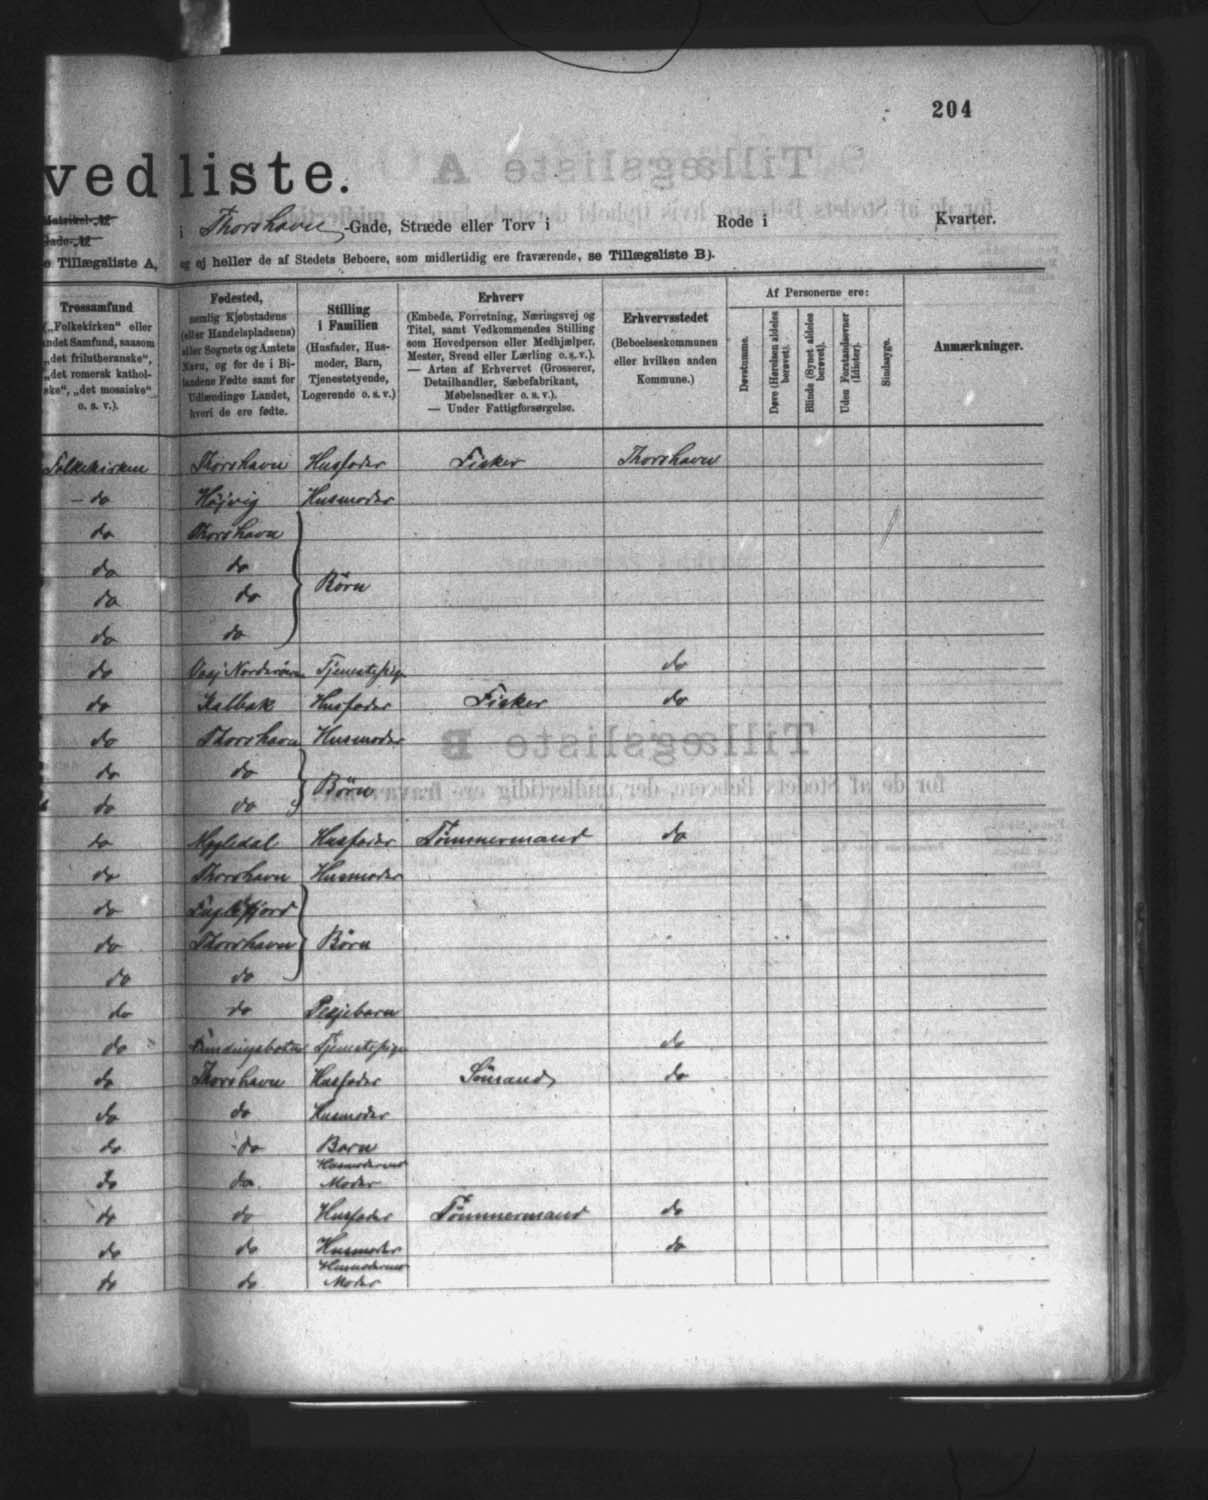 204
vedliste.
Matrikel-№
Gade-№
i Thorshavn -Gade, Stræde eller Torv i Rode i Kvarter.
e Tillægsliste A, og ej heller de af Stedets Beboere, som midlertidig ere fraværende, se Tillægsliste B).
Trossamfund
(„Folkekirken" eller
andet Samfund, saasom
„det frilutheranske",
„det romersk kathol-
ske", „det mosaiske"
o. s. v.).
Fødested,
nemlig Kjøbstadens
(eller Handelspladsens)
eller Sognets og Amtets
Navn, og for de i Bi-
landene Fødte samt for
Udlændinge Landet,
hvori de ere fødte.
Stilling
i Familien
(Husfader, Hus-
moder, Barn,
Tjenestetyende,
Logerende o. s. v.)
Erhverv
(Embede, Forretning, Næringsvej og
Titel, samt Vedkommendes Stilling
som Hovedperson eller Medhjælper,
Mester, Svend eller Lærling o. s. v.).
— Arten af Erhvervet (Grosserer,
Detailhandler, Sæbefabrikant,
Møbelsnedker o. s. v.).
— Under Fattigforsørgelse.
Erhvervsstedet
(Beboelseskommunen
eller hvilken anden
Kommune.)
Af Personerne ere:
Døvstumme.
Døve (Hørelsen aldeles
berøvet).
Blinde (Synet aldeles
berøvet).
Uden Forstandsevner
(Idioter).
Sindssyge.
Anmærkninger.
Folkekirken Thorshavn Husfader Fisker Thorshavn
do Højvig Husmoder
do Thorshavn
do do
do do Børn
do do
do Tjenestepige do
do Kalbak Husfader Fisker do
do Thorshavn Husmoder
do do
do do Børn
do Husfader Tømmermand do
do Thorshavn Husmoder
do Fuglefjord
do Thorshavn Børn
do do
do do Plejebarn
do Tjenestepige do
do Thorshavn Husfader Sømand do
do do Husmoder
do do Barn
do do Husmoderens
Moder
do do Husfader Tømmermand do
do do Husmoder do
do do Husmoderens
Moder